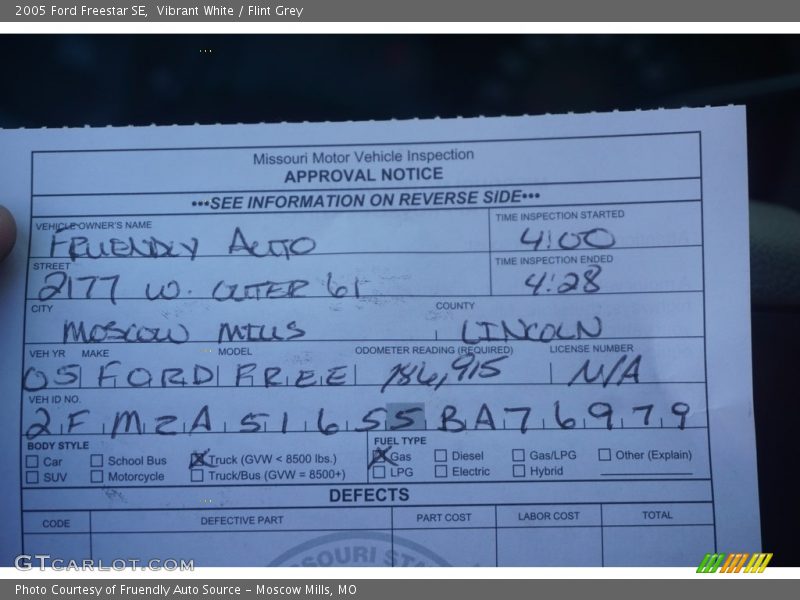 2005 Ford Freestar SE,  Vibrant White / Flint Grey
Missouri Motor Vehicle Inspection
APPROVAL NOTICE
•••SEE INFORMATION ON REVERSE SIDE•••
VEHICLE OWNER'S NAME
FRUENDLY AUTO
TIME INSPECTION STARTED
4:00
STREET
2177 W. OUTER 61
TIME INSPECTION ENDED
4:28
CITY
MOSCOW MILLS
COUNTY
LINCOLN
VEH YR MAKE MODEL ODOMETER READING (REQUIRED) LICENSE NUMBER
05 FORD FREE 186,915 N/A
VEH ID NO.
2FMZA51655BA76979
BODY STYLE
Car School Bus Truck (GVW < 8500 lbs.)
SUV Motorcycle Truck/Bus (GVW = 8500+)
FUEL TYPE
Gas Diesel Gas/LPG Other (Explain)
LPG Electric Hybrid
DEFECTS
CODE DEFECTIVE PART PART COST LABOR COST TOTAL
GTCARLOT.COM
Photo Courtesy of Fruendly Auto Source – Moscow Mills, MO